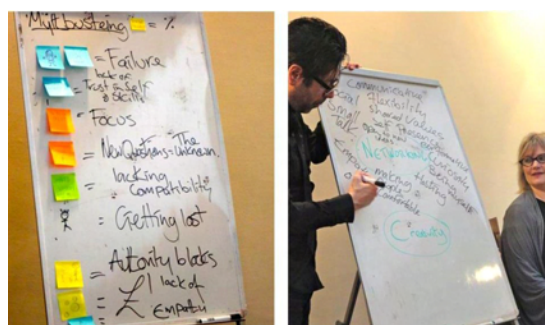 Mythbusting = %
= Failure
lack of
= Trust in Self
& Ability
= Focus
= New Questions = The
Unknown.
= lacking
Compatibility
= Getting lost
= Authority blocks
= £ / lack of
Empathy
Communication
Social flexibility
Small Shared Values
Talk self
open to new
ideas
Networking Curiosity
being
Empathy making
people
comfortable
Creativity